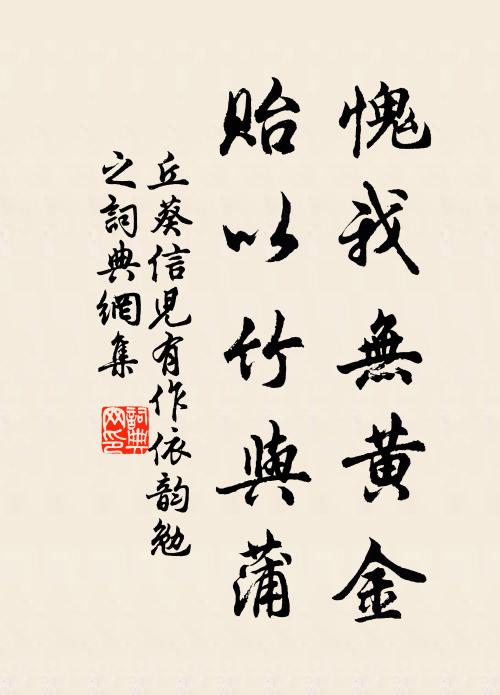 愧我無黃金
貽以竹與蒲
丘葵信兒有作依韵勉
之詞典網集
詞典
网印